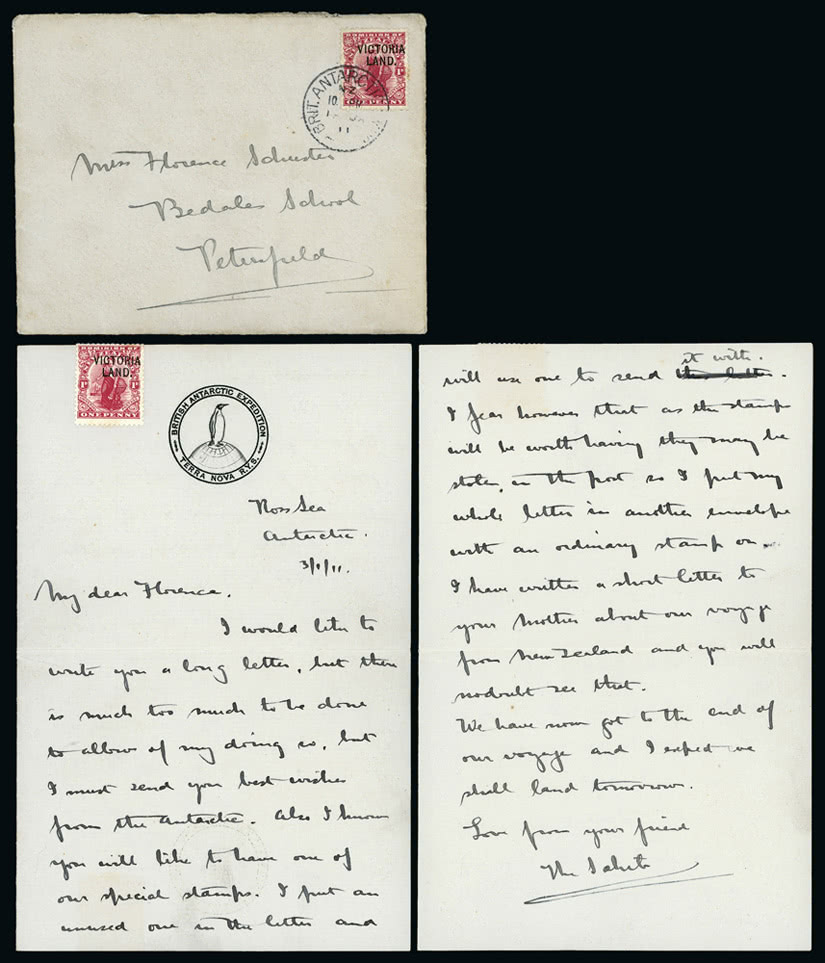 VICTORIA
LAND.
1D 1D
ONE PENNY
BRIT. ANTARCTIC
NZ
11
Miss Florence Schuster
Bedales School
Petersfield
DOMINION OF
VICTORIA
LAND.
1D 1D
ONE PENNY
BRITISH ANTARCTIC EXPEDITION
TERRA NOVA R.Y.S.
Ross Sea
Antarctic.
3/1/11.
My dear Florence.
I would like to
write you a long letter, but there
is much too much to be done
to allow of my doing so, but
I must send you best wishes
from the Antarctic. Also I know
you will like to have one of
our special stamps. I put an
unused one in the letter and
it with.
will use one to send this letter.
I fear however that as the stamps
will be worth having they may be
stolen, in the post so I put my
whole letter in another envelope
with an ordinary stamp on.
I have written a short letter to
your Mother about our voyage
from New Zealand and you will
nodoubt see that.
We have now got to the end of
our voyage and I expect we
shall land tomorrow.
Love from your friend
The